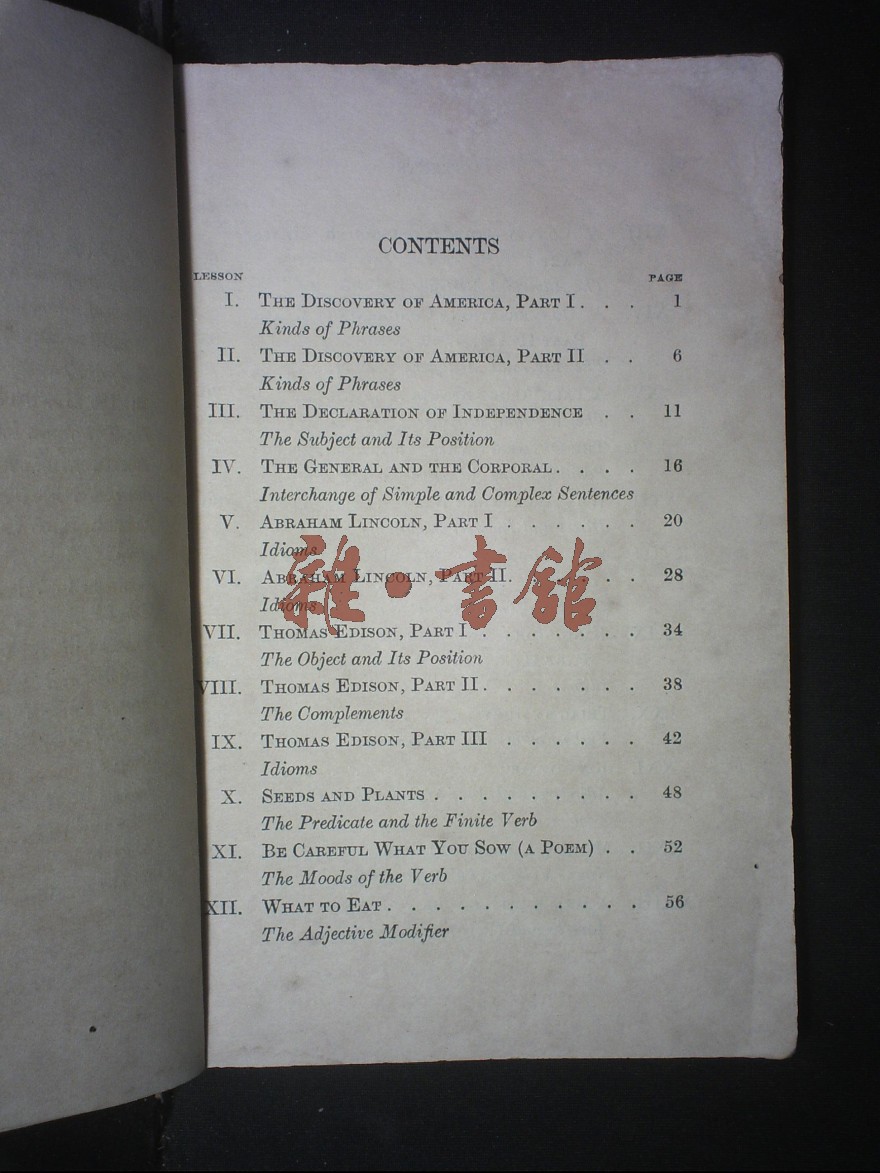 CONTENTS
LESSON PAGE
I. THE DISCOVERY OF AMERICA, PART I . . . 1
Kinds of Phrases
II. THE DISCOVERY OF AMERICA, PART II . . 6
Kinds of Phrases
III. THE DECLARATION OF INDEPENDENCE . . 11
The Subject and Its Position
IV. THE GENERAL AND THE CORPORAL . . . . 16
Interchange of Simple and Complex Sentences
V. ABRAHAM LINCOLN, PART I . . . . . . 20
Idioms
VI. ABRAHAM LINCOLN, PART II . . . . . . 28
Idioms
雜·書館
VII. THOMAS EDISON, PART I . . . . . . . 34
The Object and Its Position
VIII. THOMAS EDISON, PART II . . . . . . . 38
The Complements
IX. THOMAS EDISON, PART III . . . . . . 42
Idioms
X. SEEDS AND PLANTS . . . . . . . . . 48
The Predicate and the Finite Verb
XI. BE CAREFUL WHAT YOU SOW (A POEM) . . 52
The Moods of the Verb
XII. WHAT TO EAT . . . . . . . . . . . 56
The Adjective Modifier